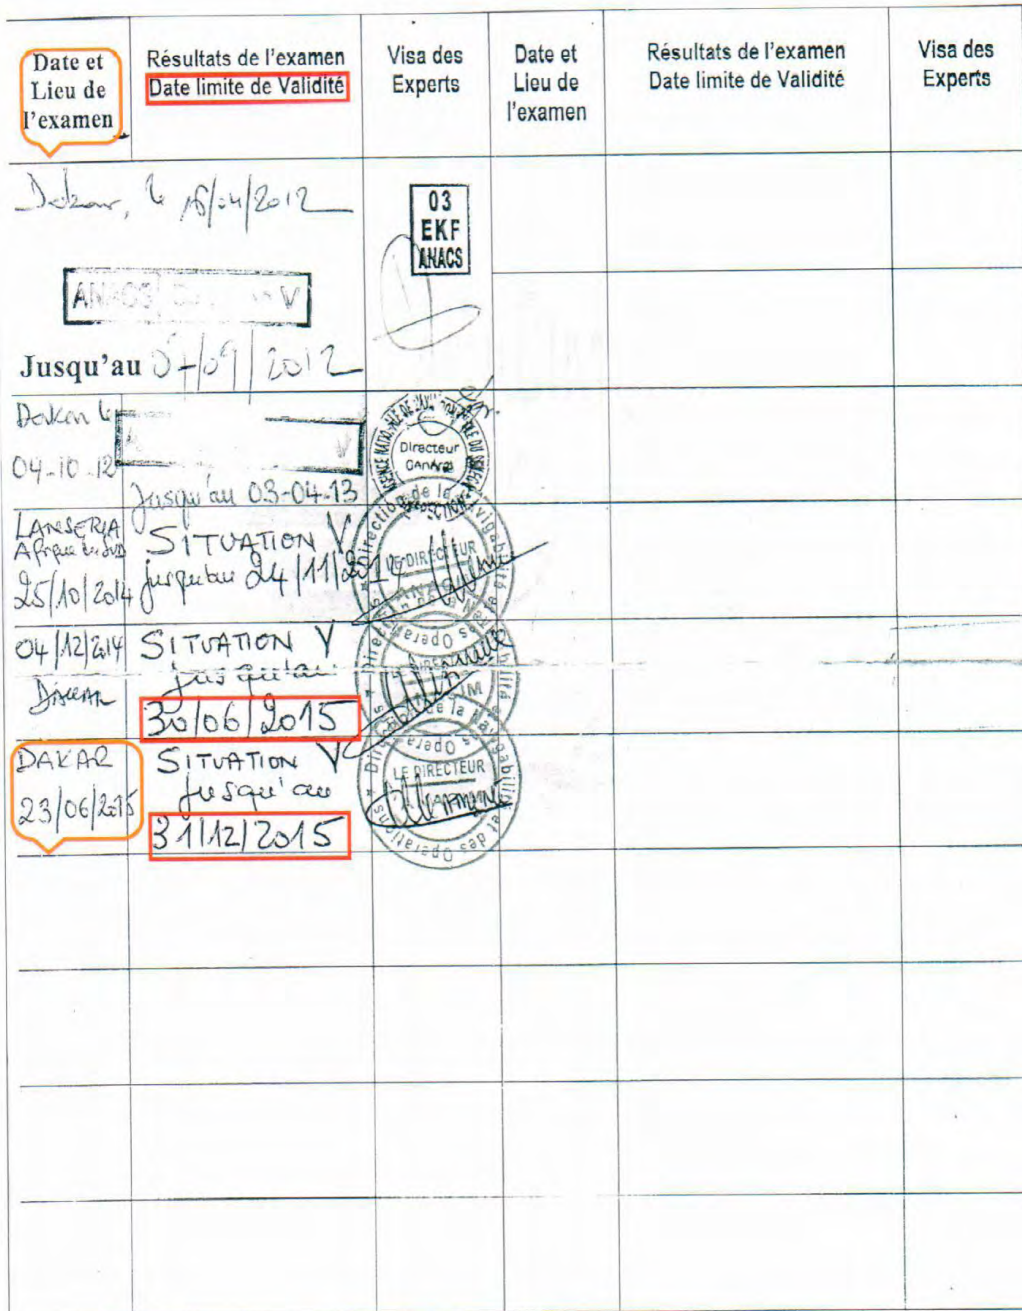 Date et
Lieu de
l'examen
Résultats de l'examen
Date limite de Validité
Visa des
Experts
Date et
Lieu de
l'examen
Résultats de l'examen
Date limite de Validité
Visa des
Experts
Dakar, le /04/2012
03
EKF
ANACS
ANACS V
Jusqu'au /09/2012
Dakar le
04-10-12
V
Jusqu'au 03-04-13
Directeur
LANSERIA
Afrique
25/10/2014
SITUATION V
jusqu'au 24/11/2014
LE DIRECTEUR
Direction de la Navigabilité
04/12/2014
DAKAR
SITUATION V
jusqu'au
30/06/2015
DAKAR
23/06/2015
SITUATION V
Jusqu'au
31/12/2015
LE DIRECTEUR
et des Operations